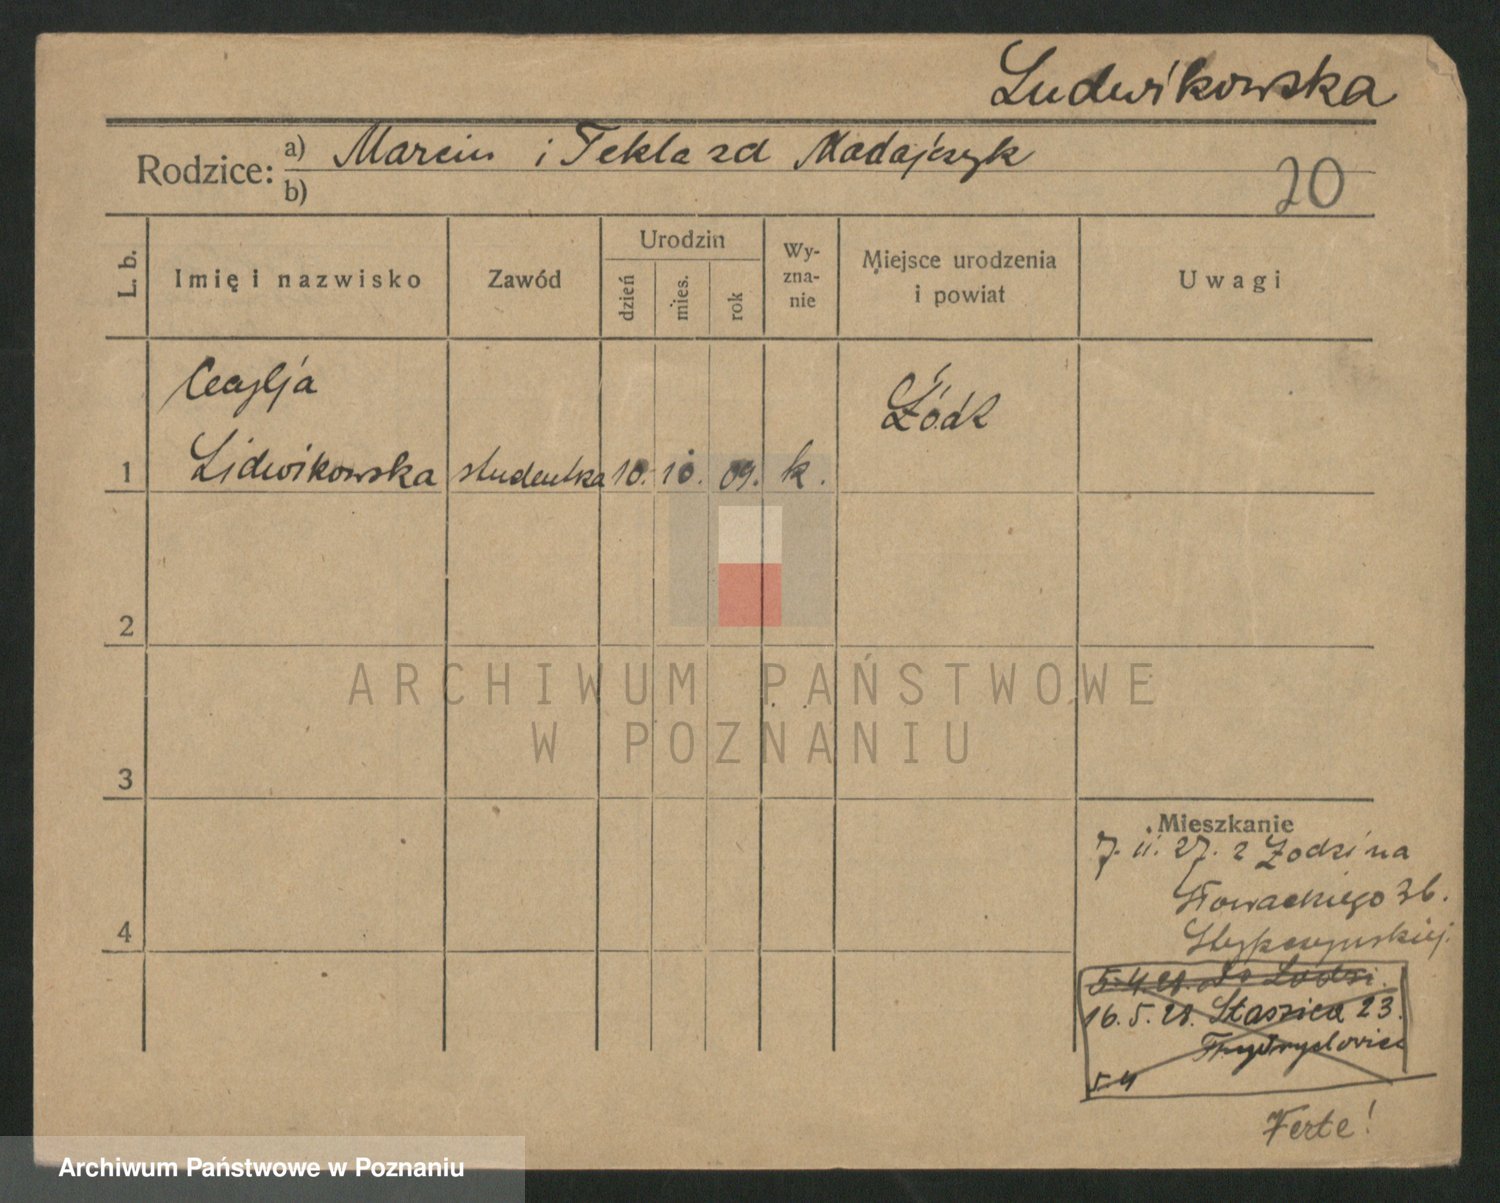 Ludwikowska
Rodzice: a) Marcin i Tekla zd Madajczyk
b)
20
L. b. Imię i nazwisko Zawód Urodzin dzień mies. rok Wy-zna-nie Miejsce urodzenia i powiat Uwagi
Cecylja
1 Lidwikowska studentka 10. 10. 09. k. Łódź
2
3
4
Mieszkanie
7. 11. 27. z Łodzi na
Słowackiego 36.
5.4.28. do Łodzi.
16.5.28. Staszica 23.
5.4
Verte!
ARCHIWUM PAŃSTWOWE
W POZNANIU
Archiwum Państwowe w Poznaniu